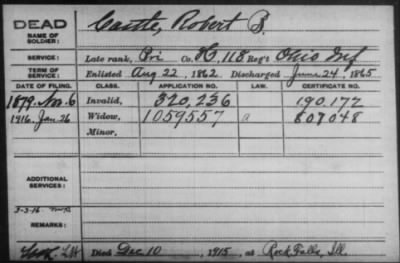 DEAD
NAME OF SOLDIER: Castle, Robert B.
SERVICE: Late rank, Pri Co. H, 118 Reg't Ohio Inf
TERM OF SERVICE: Enlisted Aug 22, 1862. Discharged June 24, 1865
DATE OF FILING. CLASS. APPLICATION NO. LAW. CERTIFICATE NO.
1879. Nov. 6 Invalid, 320,236 190,172
1916. Jan. 26 Widow, 1059557 a 807048
Minor,
ADDITIONAL SERVICES:
3-3-16
REMARKS:
Died Dec 10, 1915, at Rock Falls, Ill.